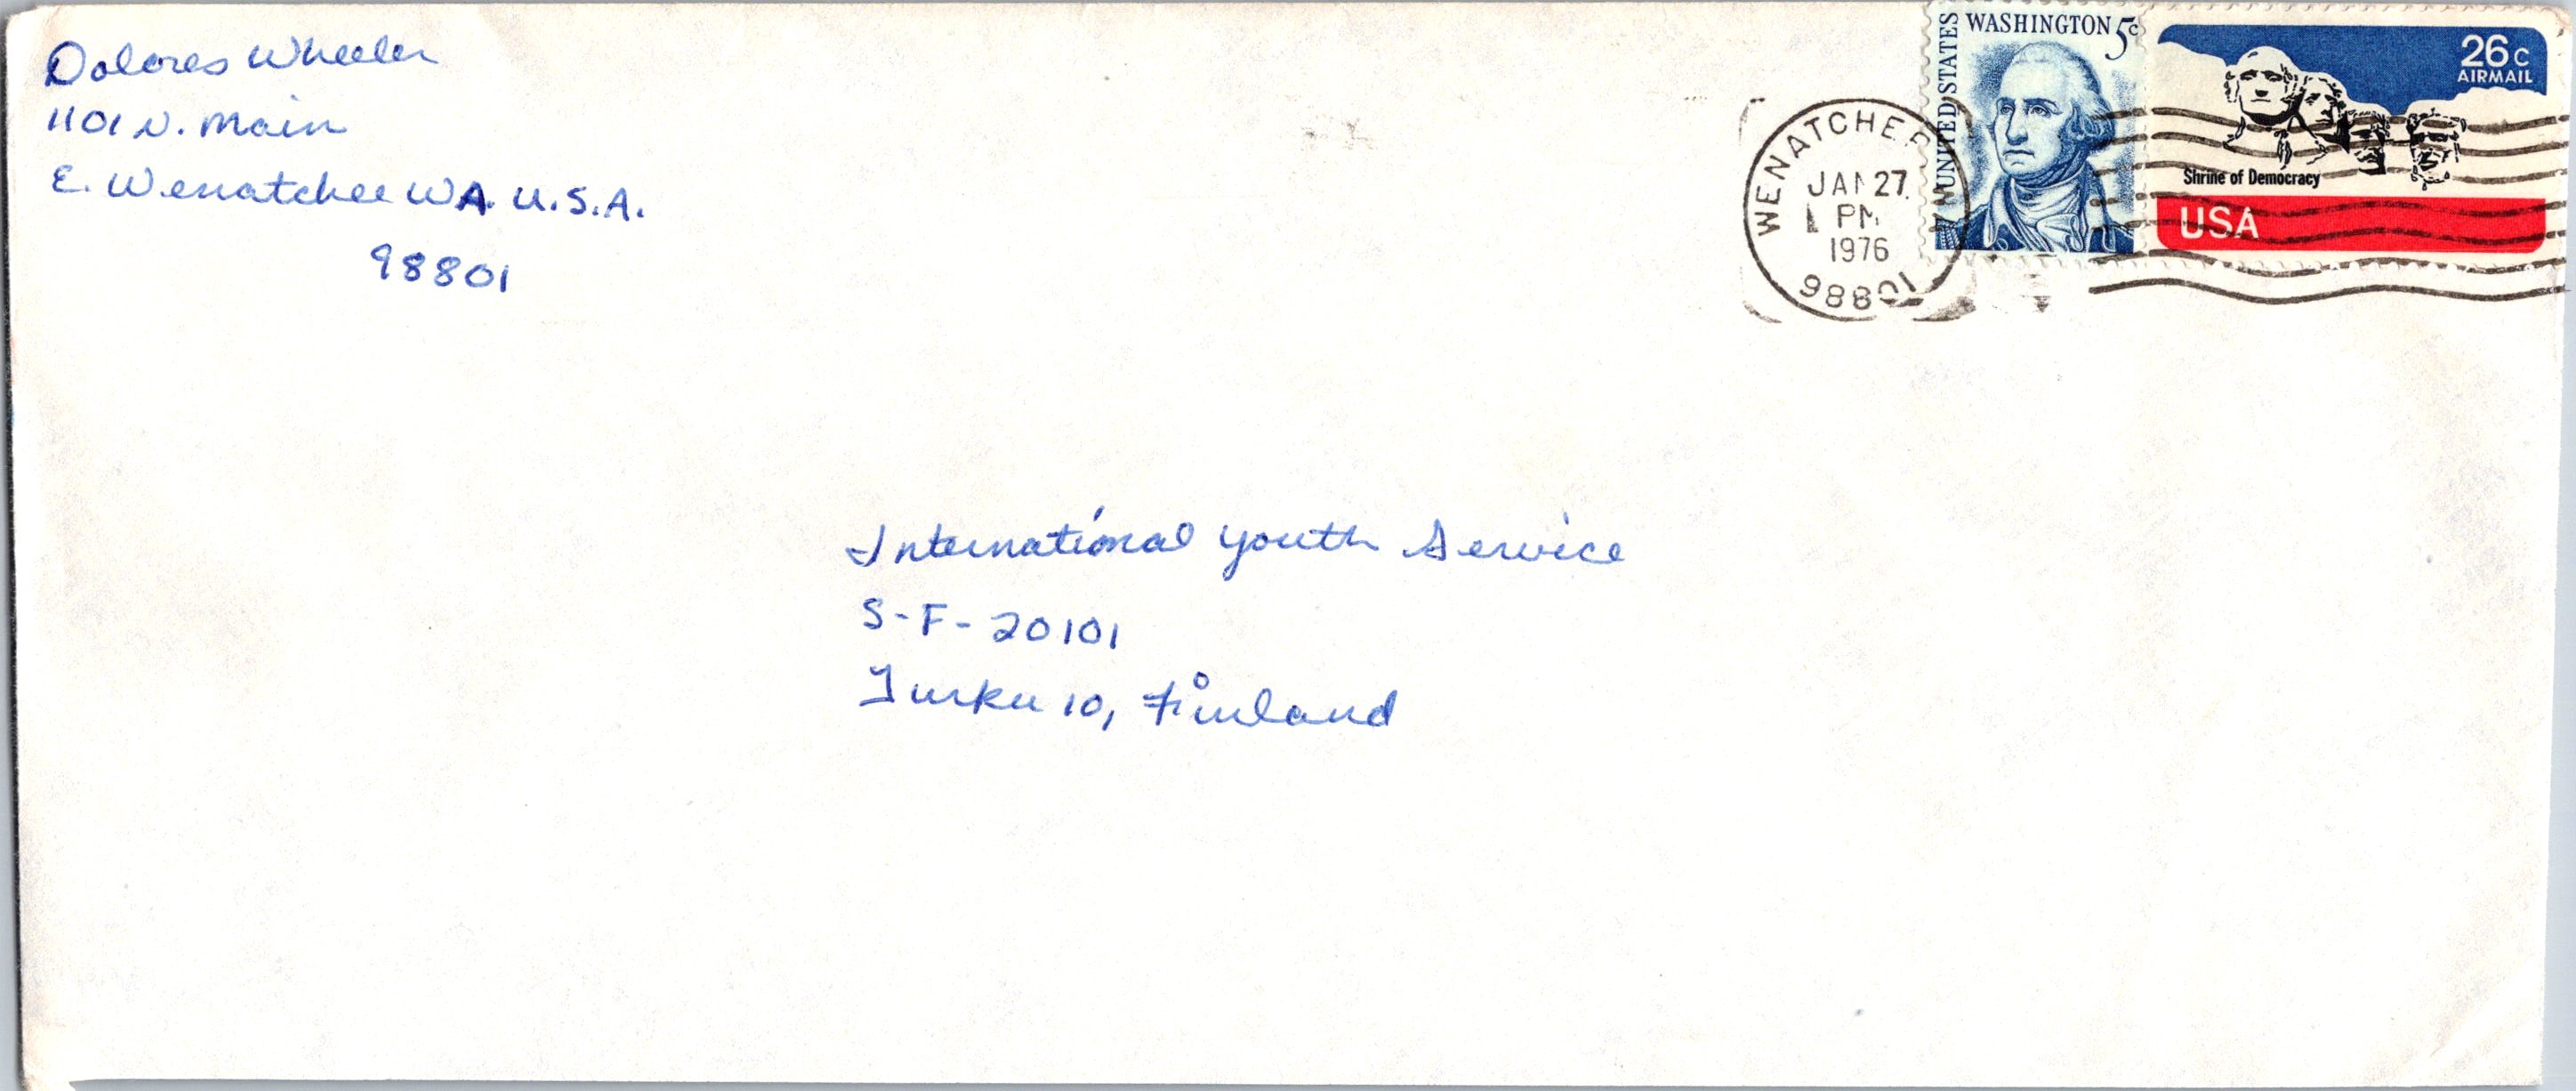 Dolores Wheeler
1101 N. Main
E. Wenatchee WA. U.S.A.
98801
UNITED STATES
WASHINGTON 5c
26c
AIRMAIL
Shrine of Democracy
USA
WENATCHEE
JAN 27
PM
1976
98801
International Youth Service
S-F-20101
Turku 10, Finland